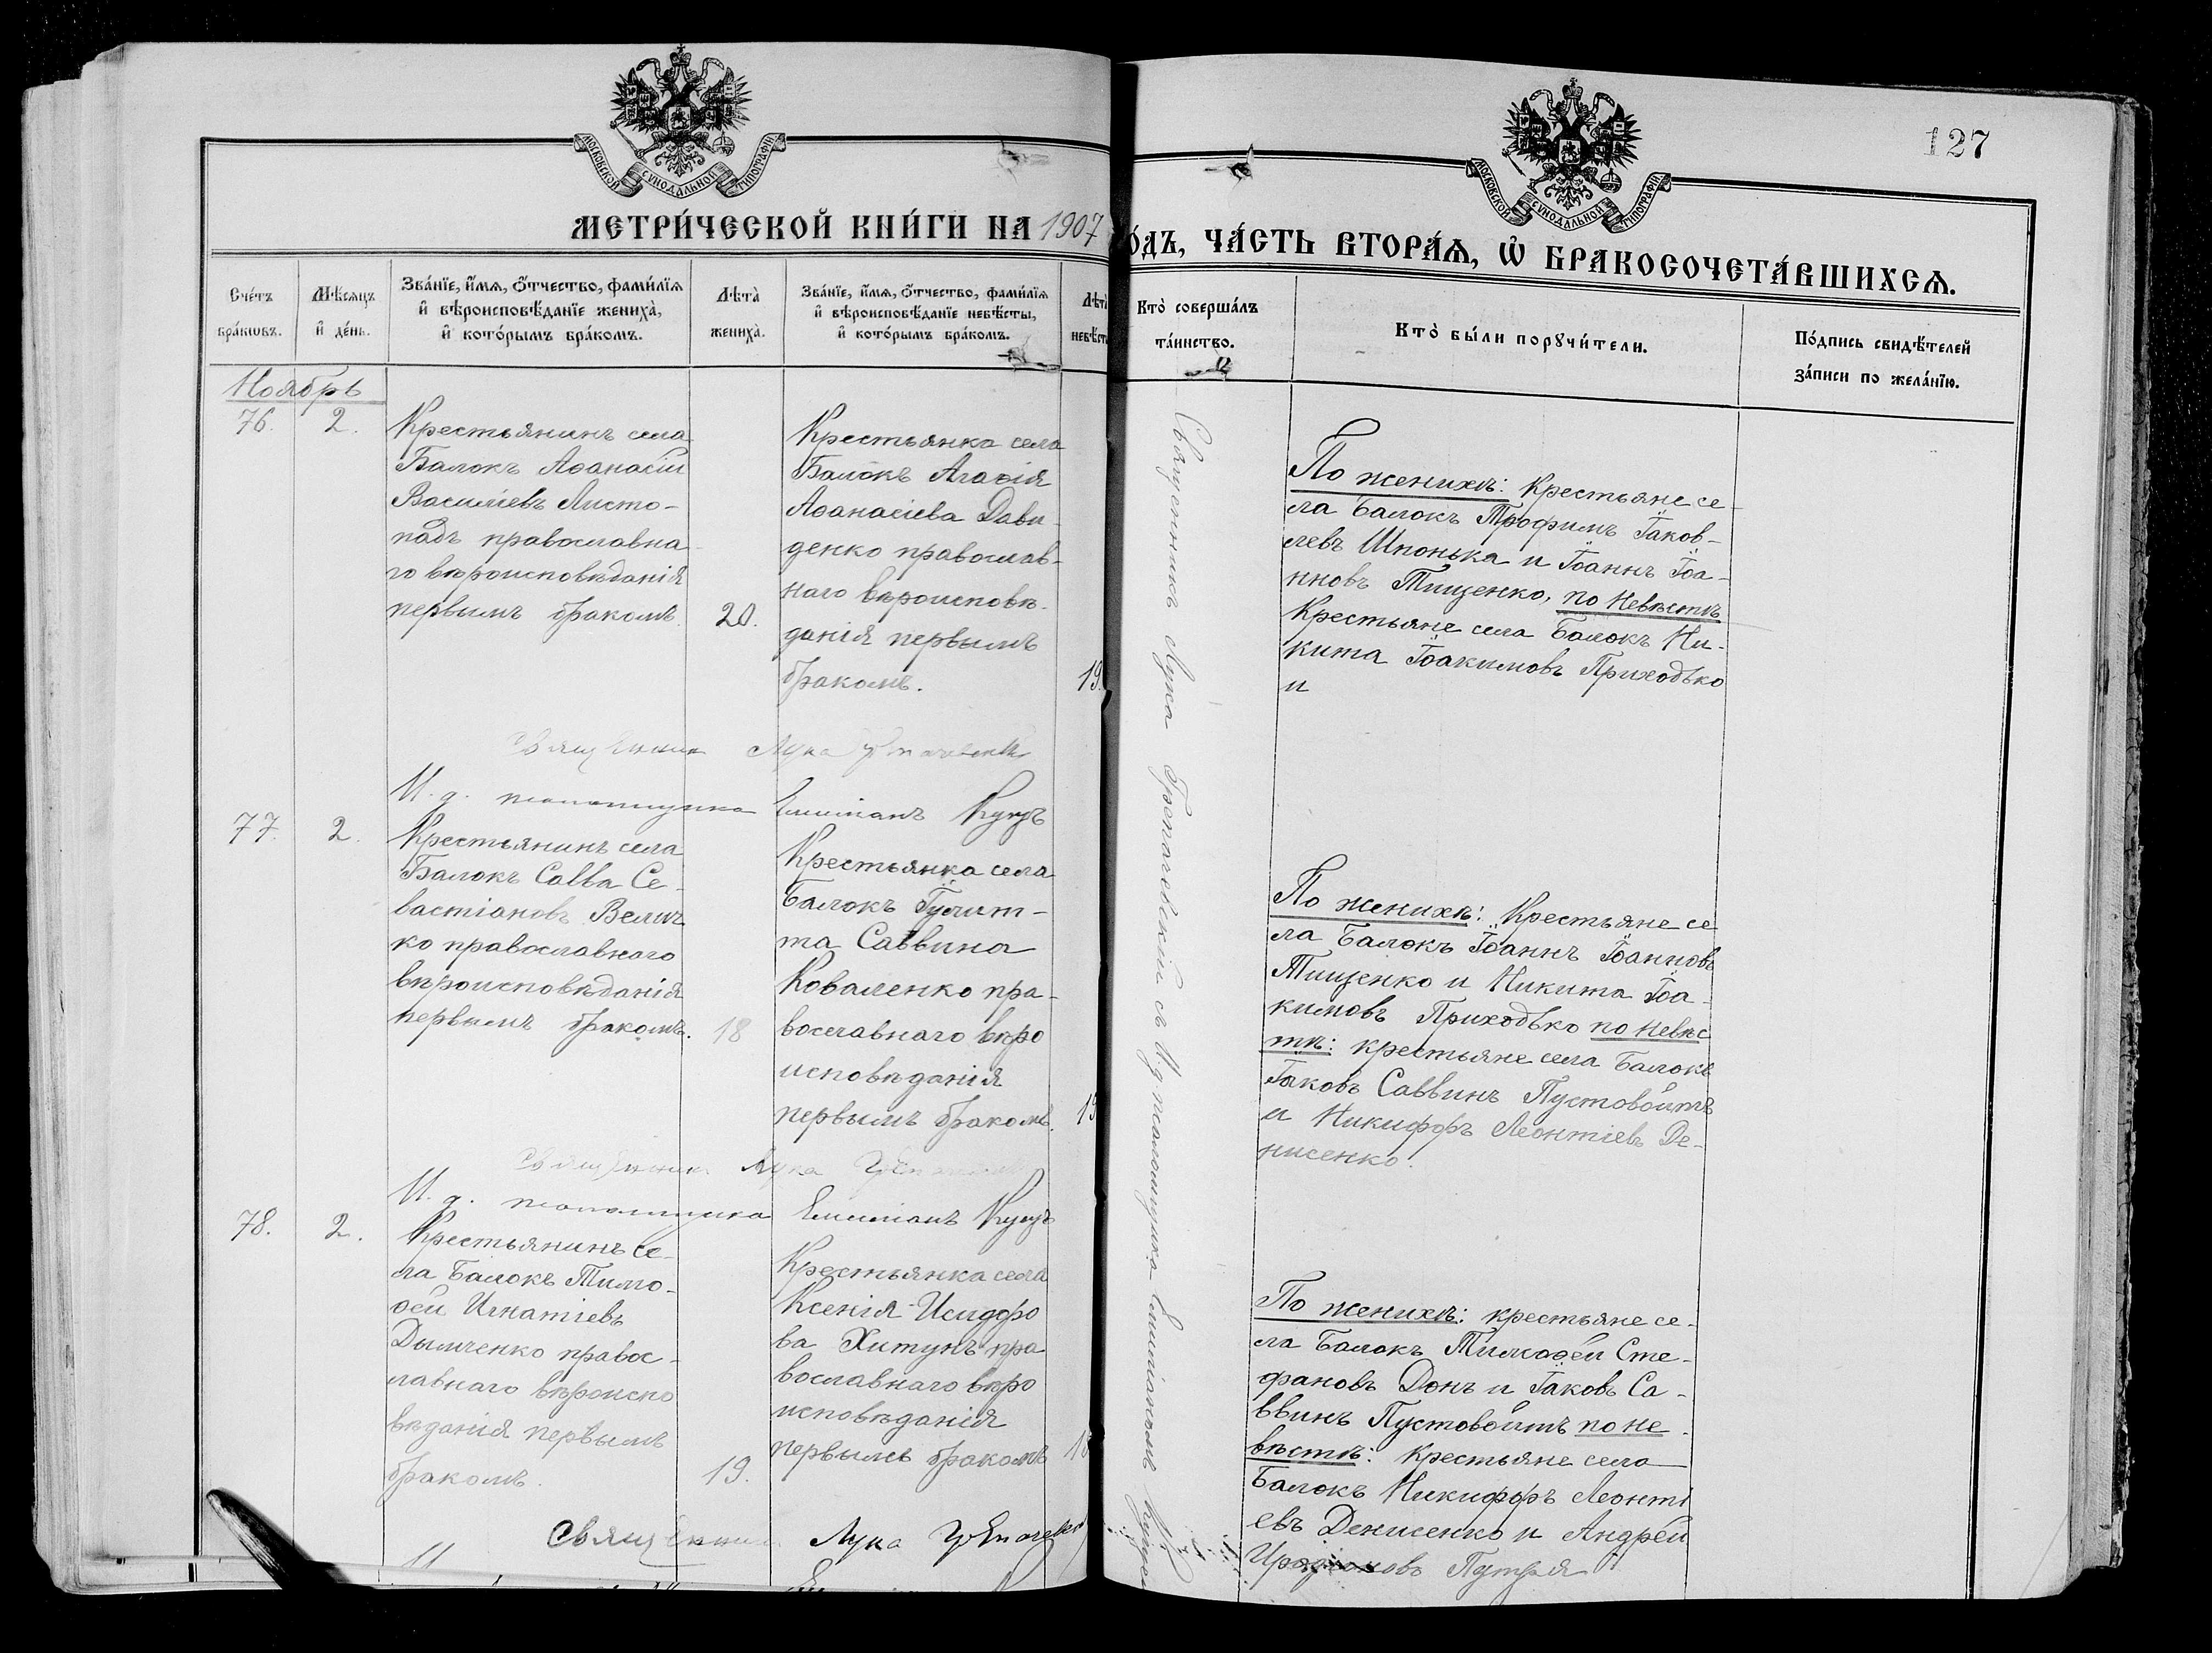 127
МОСКОВСКОЙ СѴНОДАЛЬНОЙ ТИПОГРАФІИ
МОСКОВСКОЙ СѴНОДАЛЬНОЙ ТИПОГРАФІИ
МЕТРИ́ЧЕСКОЙ КНИ́ГИ НА 1907
О́ДЪ, ЧА́СТЬ ВТОРА́Ѧ, Ѡ҆ БРАКОСОЧЕТА́ВШИХСѦ.
Сче́тъ
бра́кωвъ.
Мѣ́сѧцъ
и҆ де́нь.
Зва́нїе, и҆́мѧ, о҆́тчество, фами́лїѧ
и҆ вѣроисповѣ́данїе жениха̀,
и҆ кото́рымъ бра́комъ.
Лѣта̀
жениха̀.
Зва́нїе, и҆́мѧ, о҆́тчество, фами́лїѧ
и҆ вѣроисповѣ́данїе невѣ́сты,
и҆ кото́рымъ бра́комъ.
Лѣта̀
невѣ́ст
Кто̀ соверша́лъ
та́инство.
Кто̀ бы́ли порꙋчи́тели.
По́дпись свидѣ́телей
за́писи по жела́нїю.
Ноябрь
76.
2.
Крестьянинъ села
Балокъ Аѳанасій
Василіевъ Листо-
падъ православна-
го вѣроисповѣданія
первымъ бракомъ.
20.
Крестьянка села
Балокъ Агаѳія
Аѳанасіева Дави-
денко православ-
наго вѣроисповѣ-
данія первымъ
бракомъ.
19.
Священникъ Лука
И. д. псаломщика Емиліанъ
По женихѣ: Крестьяне се-
ла Балокъ Трофимъ Іаков-
левъ Шпонька и Іоаннъ Іоа-
нновъ Тищенко, по невѣстѣ
Крестьяне села Балокъ Ни-
кита Іоакимовъ Приходько
и
77.
2.
Крестьянинъ села
Балокъ Савва Се-
вастіановъ Велич
ко православнаго
вѣроисповѣданія
первымъ бракомъ.
18
Крестьянка села
Балокъ Іулит-
та Саввина
Коваленко пра-
вославнаго вѣро
исповѣданія
первымъ бракомъ.
19
Священникъ Лука
И. д. псаломщика Емиліанъ
По женихѣ: Крестьяне се
ла Балокъ Іоаннъ Іоанновъ
Тищенко и Никита Іоа-
кимовъ Приходько по невѣс
тѣ: крестьяне села Балокъ
Іаковъ Саввинъ Пустовойтъ
и Никифоръ Леонтіевъ Де-
нисенко.
78.
2.
Крестьянинъ се-
ла Балокъ Тимо-
ѳей Игнатіевъ
Дымченко правос-
лавнаго вѣроиспо
вѣданія первымъ
бракомъ.
19.
Крестьянка села
Ксенія Исидоро
ва Хитунъ пра
вославнаго вѣро
исповѣданія
первымъ бракомъ
Священникъ Лука
По женихѣ: крестьяне се-
ла Балокъ Тимоѳей Сте-
фановъ Донъ и Іаковъ Са-
ввинъ Пустовойтъ по не-
вѣстѣ: Крестьяне села
Балокъ Никифоръ Леонті
евъ Денисенко и Андрей
Священникъ Лука съ И. д. псаломщика Емиліаномъ